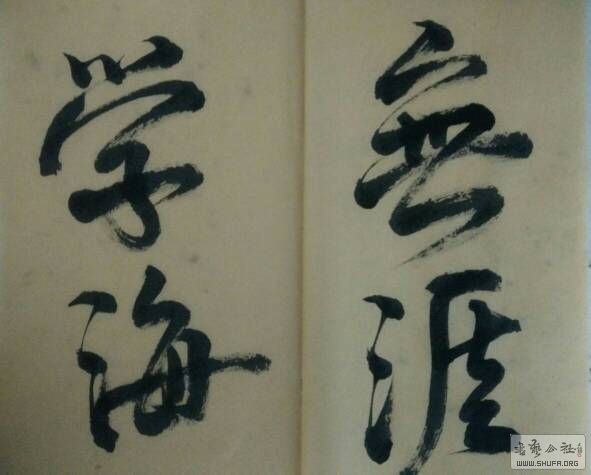 学海
無涯
書法公社
WWW.SHUFA.ORG